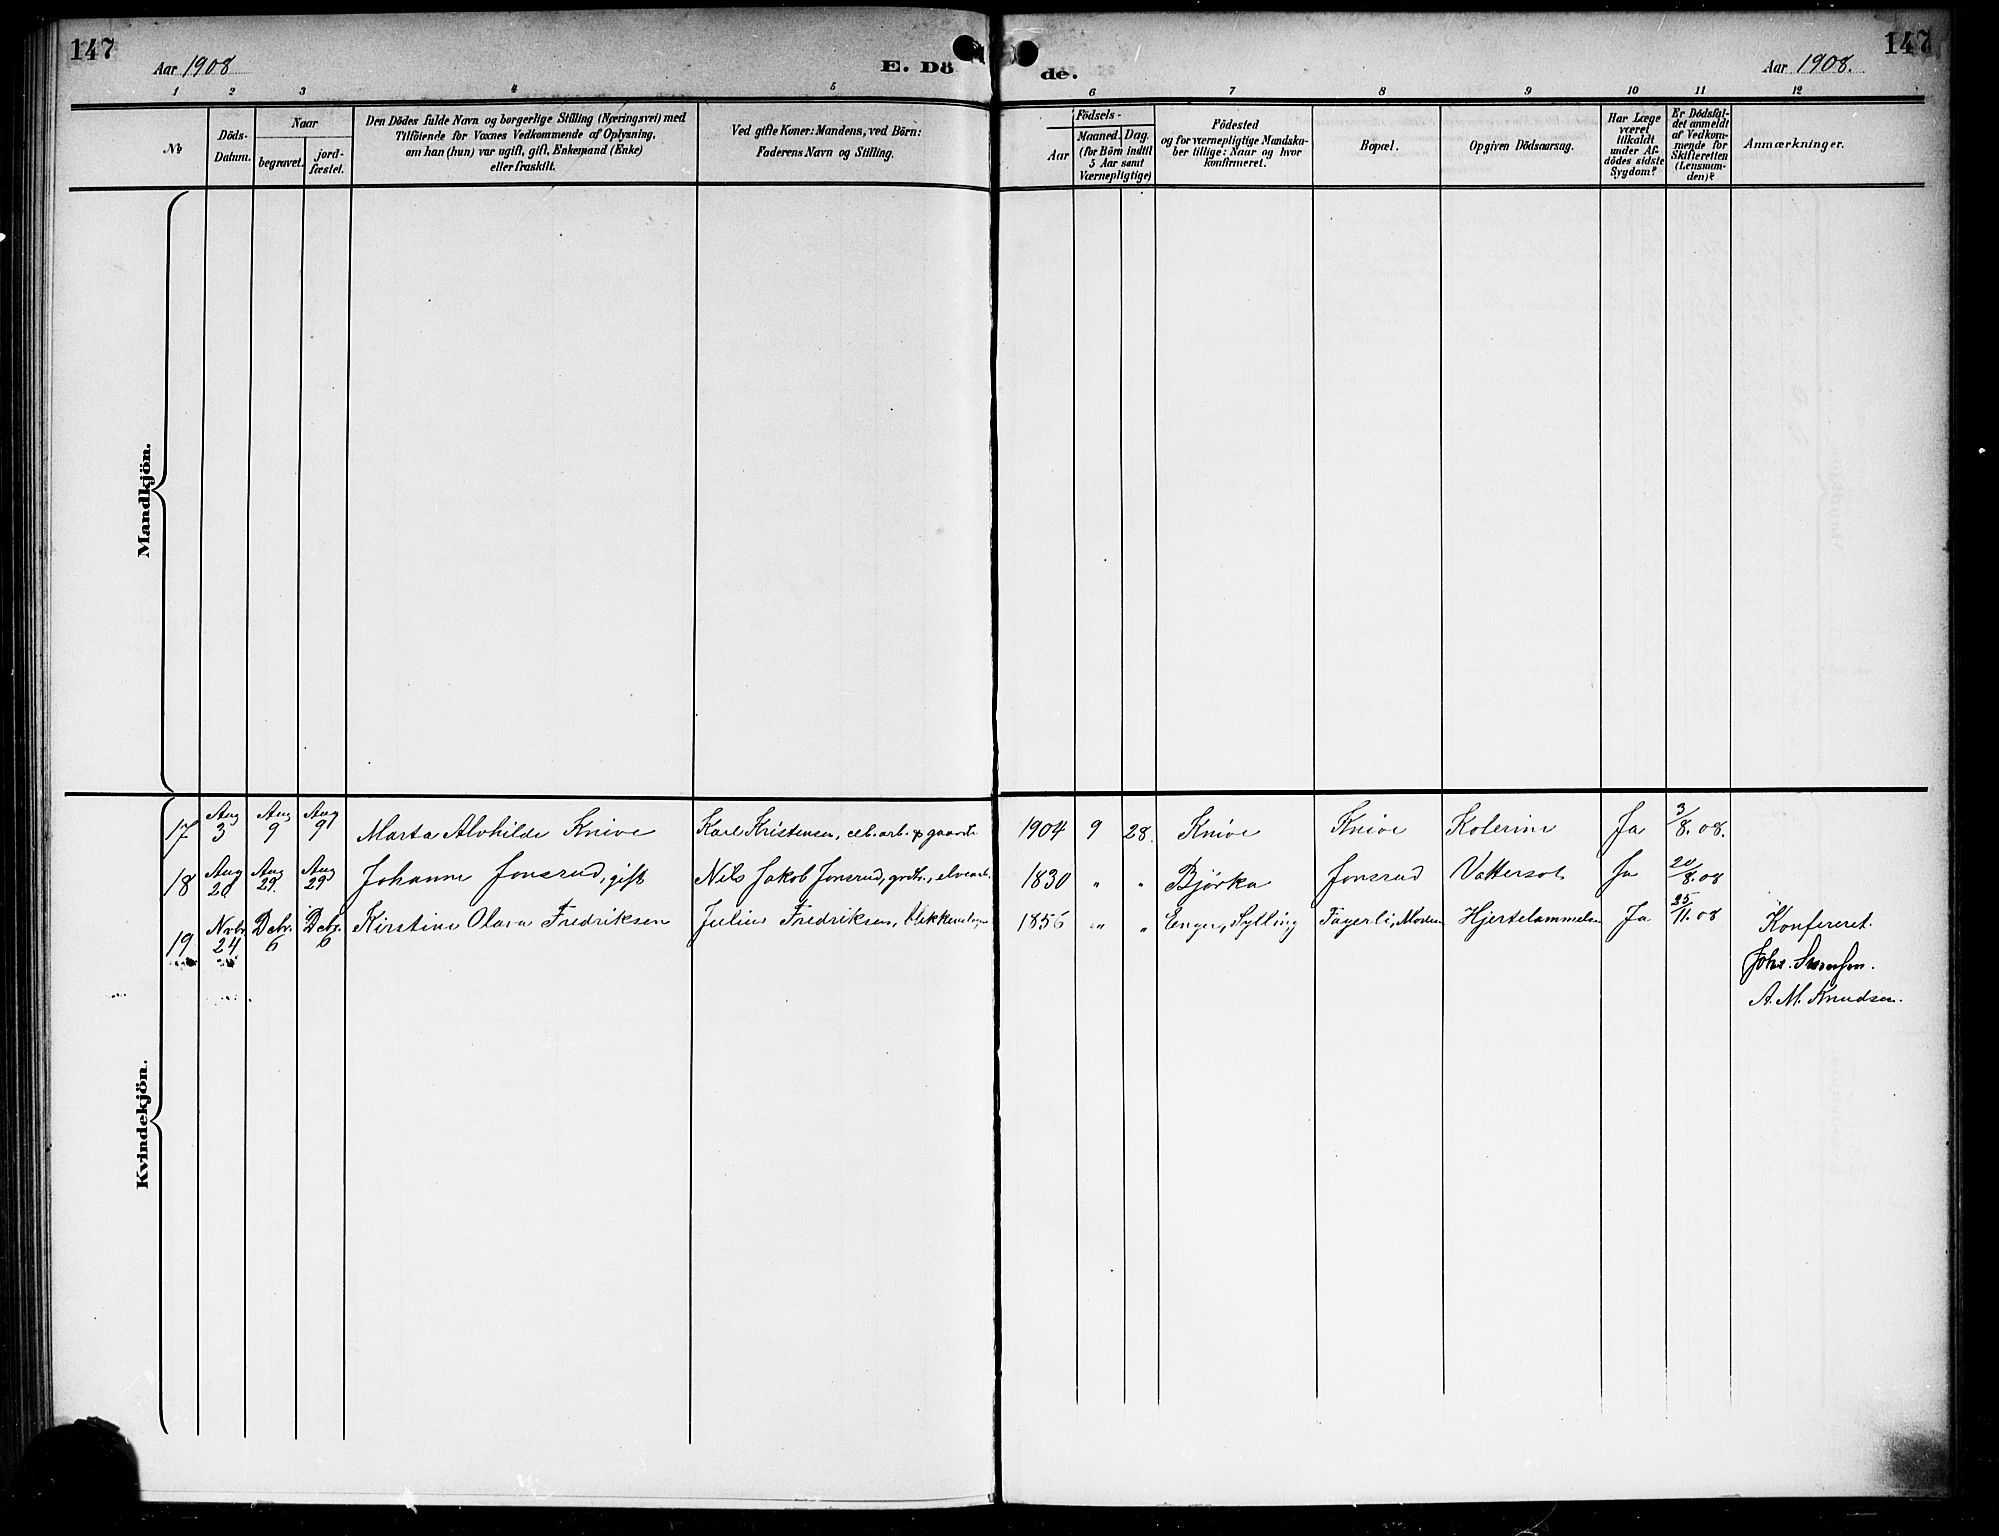 147
Aar 1908
E. Dö
de.
Aar 1908.
147
1 2 3 4 5 6 7 8 9 10 11 12
No
Döds-
Datum.
Naar
begravet.
jord-
fæstet.
Den Dödes fulde Navn og borgerlige Stilling (Næringsvei) med
Tilföiende for Voxnes Vedkommende af Oplysning,
om han (hun) var ugift, gift, Enkemand (Enke)
eller fraskilt.
Ved gifte Koner: Mandens, ved Börn:
Faderens Navn og Stilling.
Födsels-
Aar
Maaned. Dag.
(for Börn indtil
5 Aar samt
Værnepligtige)
Födested
og for værnepligtige Mandska-
ber tillige: Naar og hvor
konfirmeret.
Bopæl.
Opgiven Dödsaarsag.
Har Læge
været
tilkaldt
under Af-
dödes sidste
Sygdom?
Er Dödsfal-
det anmeldt
af Vedkom-
mende for
Skifteretten
(Lensman-
den)?
Anmærkninger.
Mandkjön.
Kvindekjön.
17 Aug 3 Aug 9 Aug 9 Marta Alvhilde Knive Karl Kristensen, elb.arb. 1904 9 28. Knive Knive Kolerine Ja 3/8.08.
18 Aug 20 Aug 29 Aug 29 Johanne Jonsrud, gift Nils Jakob Jonsrud, grdbr., elvearb. 1830 " " Bjørka Jonsrud Vattersot Ja 20/8.08
19 Novbr. 24 Debr. 6 Debr. 6 Kirstine Olava Fredriksen Julius Fredriksen, 1856 " " Enger, Sylling Fagerli, Modum Hjertelammelse Ja 25/11.08
Konfereret.
Johs.
A. M. Knudsen.